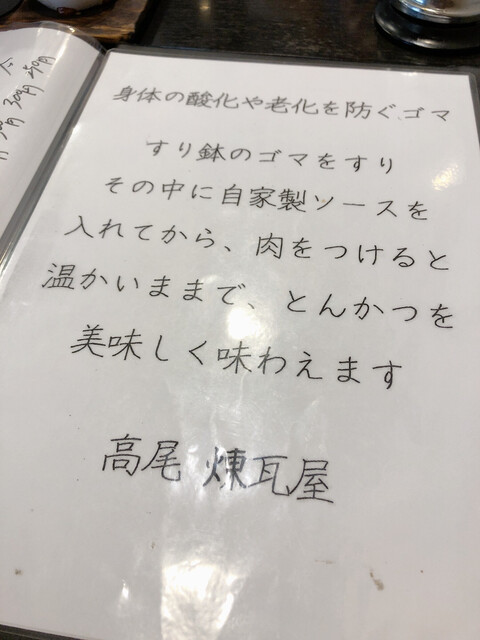 身体の酸化や老化を防ぐ、ゴマ
すり鉢のゴマをすり
その中に自家製ソースを
入れてから、肉をつけると
温かいままで、とんかつを
美味しく味わえます
高尾 煉瓦屋